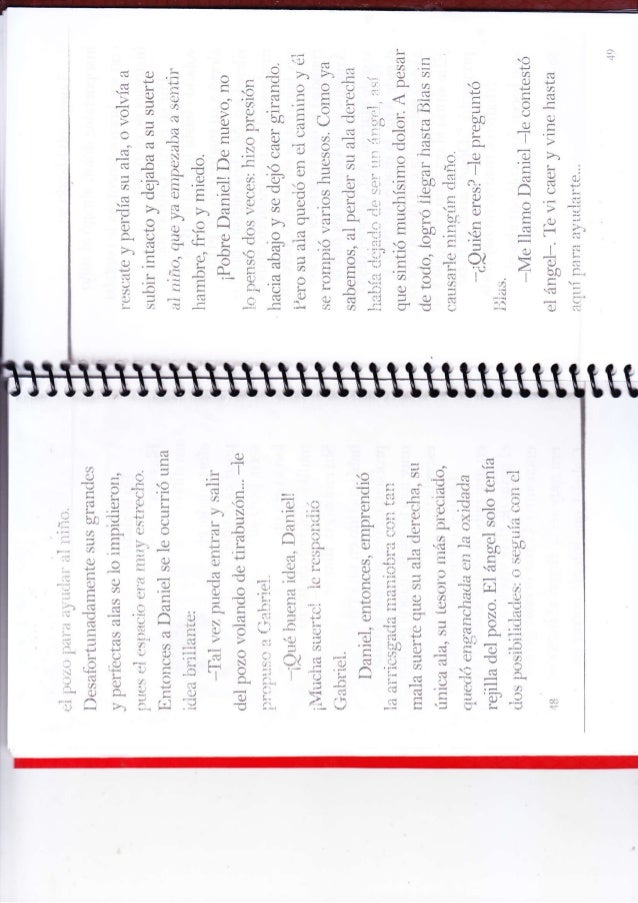 el pozo para ayudar al niño.
Desafortunadamente sus grandes
y perfectas alas se lo impidieron,
pues el espacio era muy estrecho.
Entonces a Daniel se le ocurrió una
idea brillante:
–Tal vez pueda entrar y salir
del pozo volando de tirabuzón... –le
propuso a Gabriel.
–¡Qué buena idea, Daniel!
¡Mucha suerte! le respondió
Gabriel.
Daniel, entonces, emprendió
la arriesgada maniobra con tan
mala suerte que su ala derecha, su
única ala, su tesoro más preciado,
quedó enganchada en la oxidada
rejilla del pozo. El ángel solo tenía
dos posibilidades: o seguía con el
48
rescate y perdía su ala, o volvía a
subir intacto y dejaba a su suerte
al niño, que ya empezaba a sentir
hambre, frío y miedo.
¡Pobre Daniel! De nuevo, no
lo pensó dos veces: hizo presión
hacia abajo y se dejó caer girando.
Pero su ala quedó en el camino y él
se rompió varios huesos. Como ya
sabemos, al perder su ala derecha
había dejado de ser un ángel, así
que sintió muchísimo dolor. A pesar
de todo, logró llegar hasta Blas sin
causarle ningún daño.
–¿Quién eres? –le preguntó
Blas.
–Me llamo Daniel –le contestó
el ángel–. Te vi caer y vine hasta
aquí para ayudarte...
49